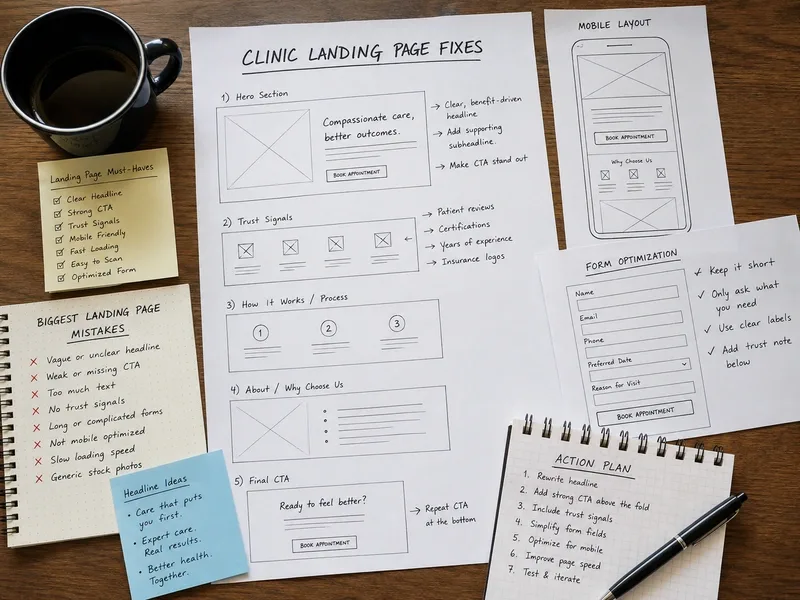 CLINIC LANDING PAGE FIXES
1) Hero Section
Compassionate care,
better outcomes.
BOOK APPOINTMENT
→ Clear, benefit-driven
headline
→ Add supporting
subheadline.
→ Make CTA stand out
2) Trust Signals
→ Patient reviews
→ Certifications
→ Years of experience
→ Insurance logos
3) How it Works / Process
1
2
3
4) About / Why Choose Us
5) Final CTA
Ready to feel better?
BOOK APPOINTMENT
→ Repeat CTA
at the bottom
Landing Page Must-Haves
☑ Clear Headline
☑ Strong CTA
☑ Trust Signals
☑ Mobile Friendly
☑ Fast Loading
☑ Easy to Scan
☑ Optimized Form
BIGGEST LANDING PAGE
MISTAKES
✗ Vague or unclear headline
✗ Weak or missing CTA
✗ Too much text
✗ No trust signals
✗ Long or complicated forms
✗ Not mobile optimized
✗ Slow loading speed
✗ Generic stock photos
Headline Ideas
• Care that puts
you first.
• Expert care.
Real results.
• Better health.
Together.
MOBILE LAYOUT
BOOK APPOINTMENT
Why Choose Us
FORM OPTIMIZATION
Name
Email
Phone
Preferred Date
Reason for Visit
BOOK APPOINTMENT
✓ Keep it short
✓ Only ask what
you need
✓ Use clear labels
✓ Add trust note
below
ACTION PLAN
1. Rewrite headline
2. Add strong CTA above the fold
3. Include trust signals
4. Simplify form fields
5. Optimize for mobile
6. Improve page speed
7. Test & iterate